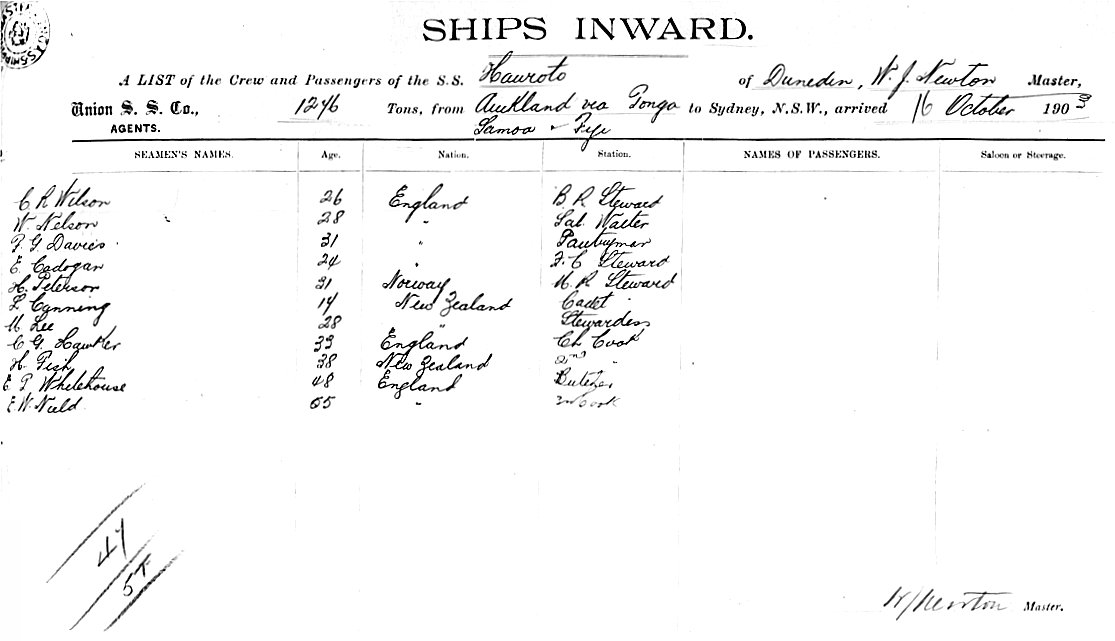 SHIPS INWARD.
A LIST of the Crew and Passengers of the S.S. Hauroto of Dunedin, W. J. Newton Master,
Union S. S. Co., 1276 Tons, from Auckland via Tonga to Sydney, N.S.W., arrived 16 October 1903
AGENTS. Samoa & Fiji
SEAMEN'S NAMES. Age. Nation. Station. NAMES OF PASSENGERS. Saloon or Steerage.
C R Wilson 26 England B R Steward
W. Nelson 28 " Sal. Waiter
P. G. Davies 31 " Pantryman
E. Cadogan 24 " F. C Steward
H. Peterson 31 Norway M. R Steward
L. Canning 17 New Zealand Cadet
M Lee 28 " Stewardess
C G. Hawker 33 England Ch. Cook
H. Fish 38 New Zealand 2nd "
E P Whitehouse 48 England Butcher
E. W. Nield 55 " Cook
47
57
W J Newton Master.